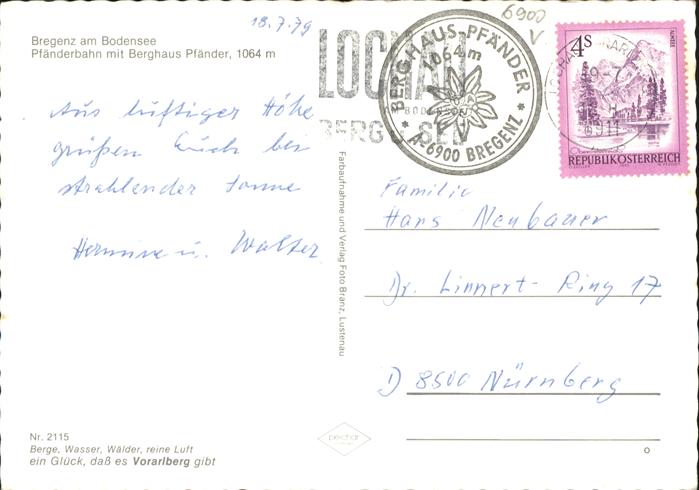 18.7.79
6900
V
Bregenz am Bodensee
Pfänderbahn mit Berghaus Pfänder, 1064 m
LOCHAU
AM BODENSEE
BERG u. SEE
* BERGHAUS-PFÄNDER *
1064 m
A-6900 BREGENZ
4S
REPUBLIK ÖSTERREICH
6911
Aus luftiger Höhe
grüßen Euch bei
strahlender Sonne
Hermine u. Walter
Familie
Hans Neubauer
Dr. Linnert-Ring 17
D 8500 Nürnberg
Farbaufnahme und Verlag Foto Branz, Lustenau
Nr. 2115
Berge, Wasser, Wälder, reine Luft
ein Glück, daß es Vorarlberg gibt
o